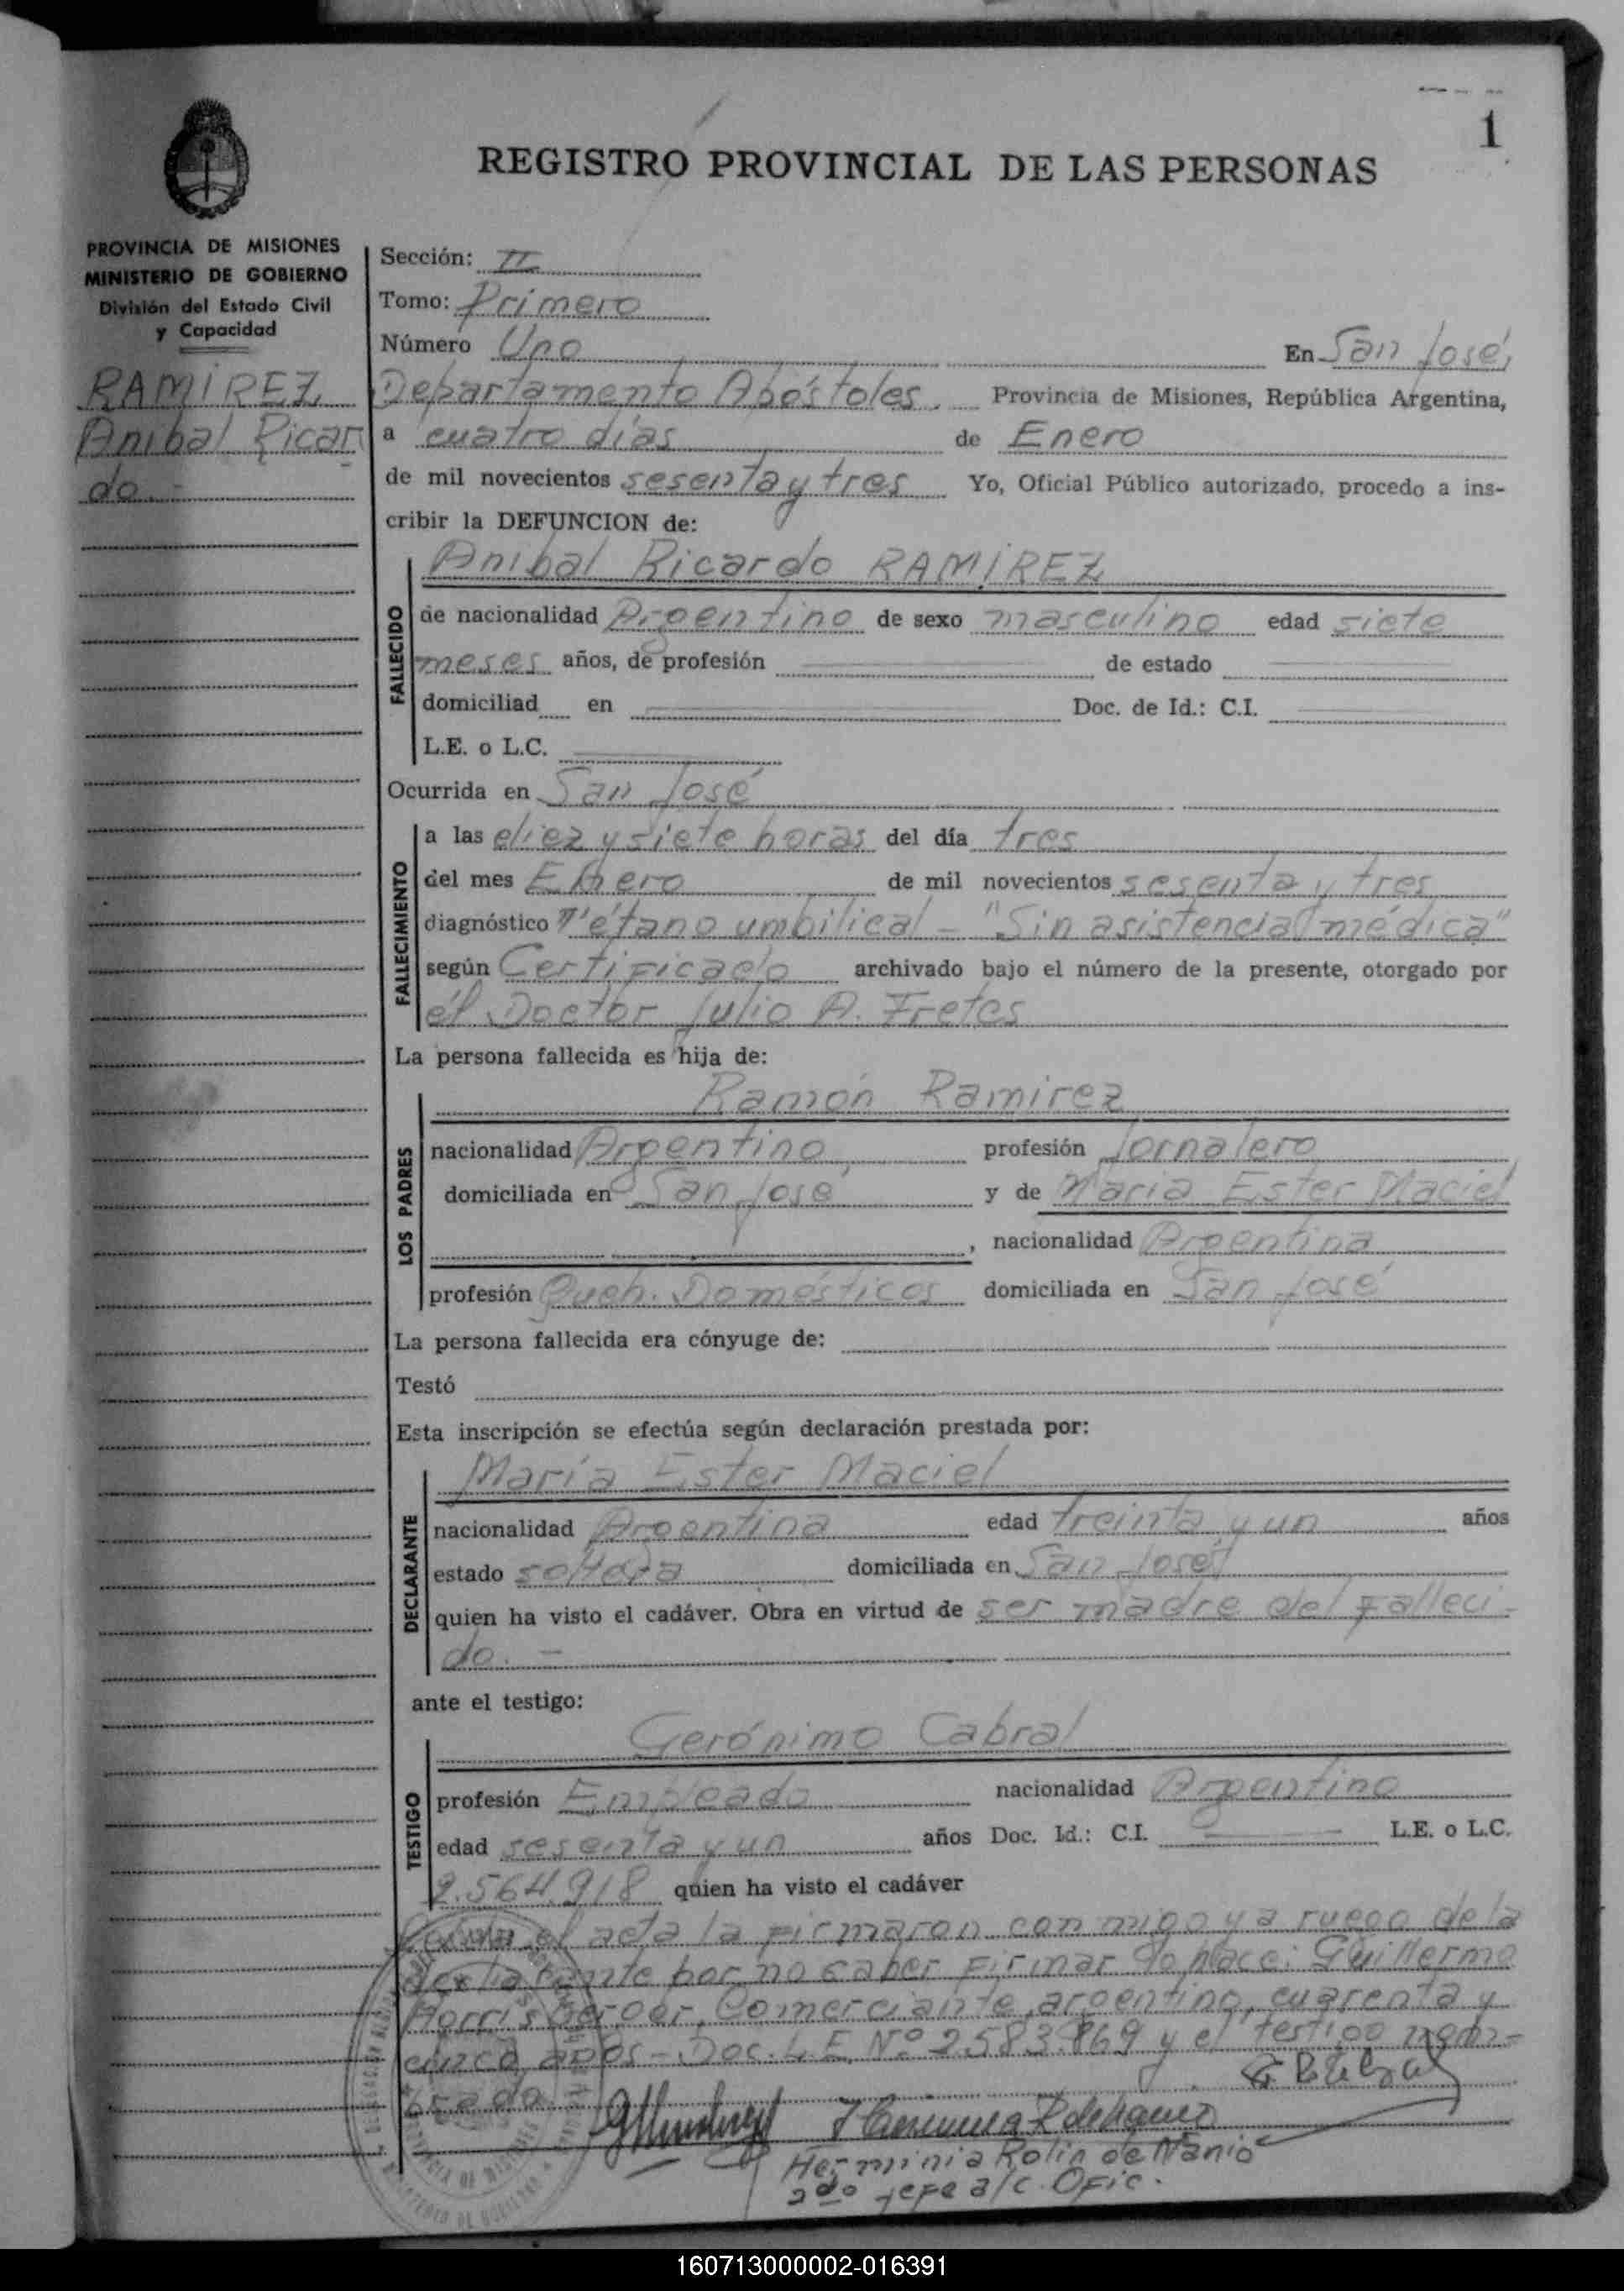 1
REGISTRO PROVINCIAL DE LAS PERSONAS
PROVINCIA DE MISIONES
MINISTERIO DE GOBIERNO
División del Estado Civil
y Capacidad
RAMIREZ
Anibal Ricar
do.-
Sección: II
Tomo: Primero
Número Uno En San José,
Departamento Apóstoles. Provincia de Misiones, República Argentina,
a cuatro días de Enero
de mil novecientos sesenta y tres Yo, Oficial Público autorizado, procedo a ins-
cribir la DEFUNCION de:
Anibal Ricardo RAMIREZ
FALLECIDO
de nacionalidad Argentino de sexo masculino edad siete
meses años, de profesión de estado
domiciliad en Doc. de Id.: C.I.
L.E. o L.C.
Ocurrida en San José
FALLECIMIENTO
a las diez y siete horas del día tres
del mes Enero de mil novecientos sesenta y tres
diagnóstico Tétano umbilical - "Sin asistencia médica"
según Certificado archivado bajo el número de la presente, otorgado por
él Doctor Julio A. Fretes
La persona fallecida es hija de:
Ramón Ramirez
LOS PADRES
nacionalidad Argentino, profesión Jornalero
domiciliada en San José y de Maria Ester Maciel
, nacionalidad Argentina
profesión Queh. Domésticos domiciliada en San José
La persona fallecida era cónyuge de:
Testó
Esta inscripción se efectúa según declaración prestada por:
María Ester Maciel
DECLARANTE
nacionalidad Argentina edad treinta y un años
estado soltera domiciliada en San José
quien ha visto el cadáver. Obra en virtud de ser madre del falleci-
do.-
ante el testigo:
Gerónimo Cabral
TESTIGO
profesión Empleado nacionalidad Argentino
edad sesenta y un años Doc. Id.: C.I. L.E. o L.C.
2.564.918 quien ha visto el cadáver
Leída el acta la firmaron conmigo y a ruego de la
declarante por no saber firmar lo hace: Guillermo
Morris Berger, Comerciante, argentino, cuarenta y
cinco años - Doc. L.E. Nº 2.583.869 y el testigo nom-
brado.
Herminia Rolin de Nanio
2do jefe a/c. Ofic.
160713000002-016391